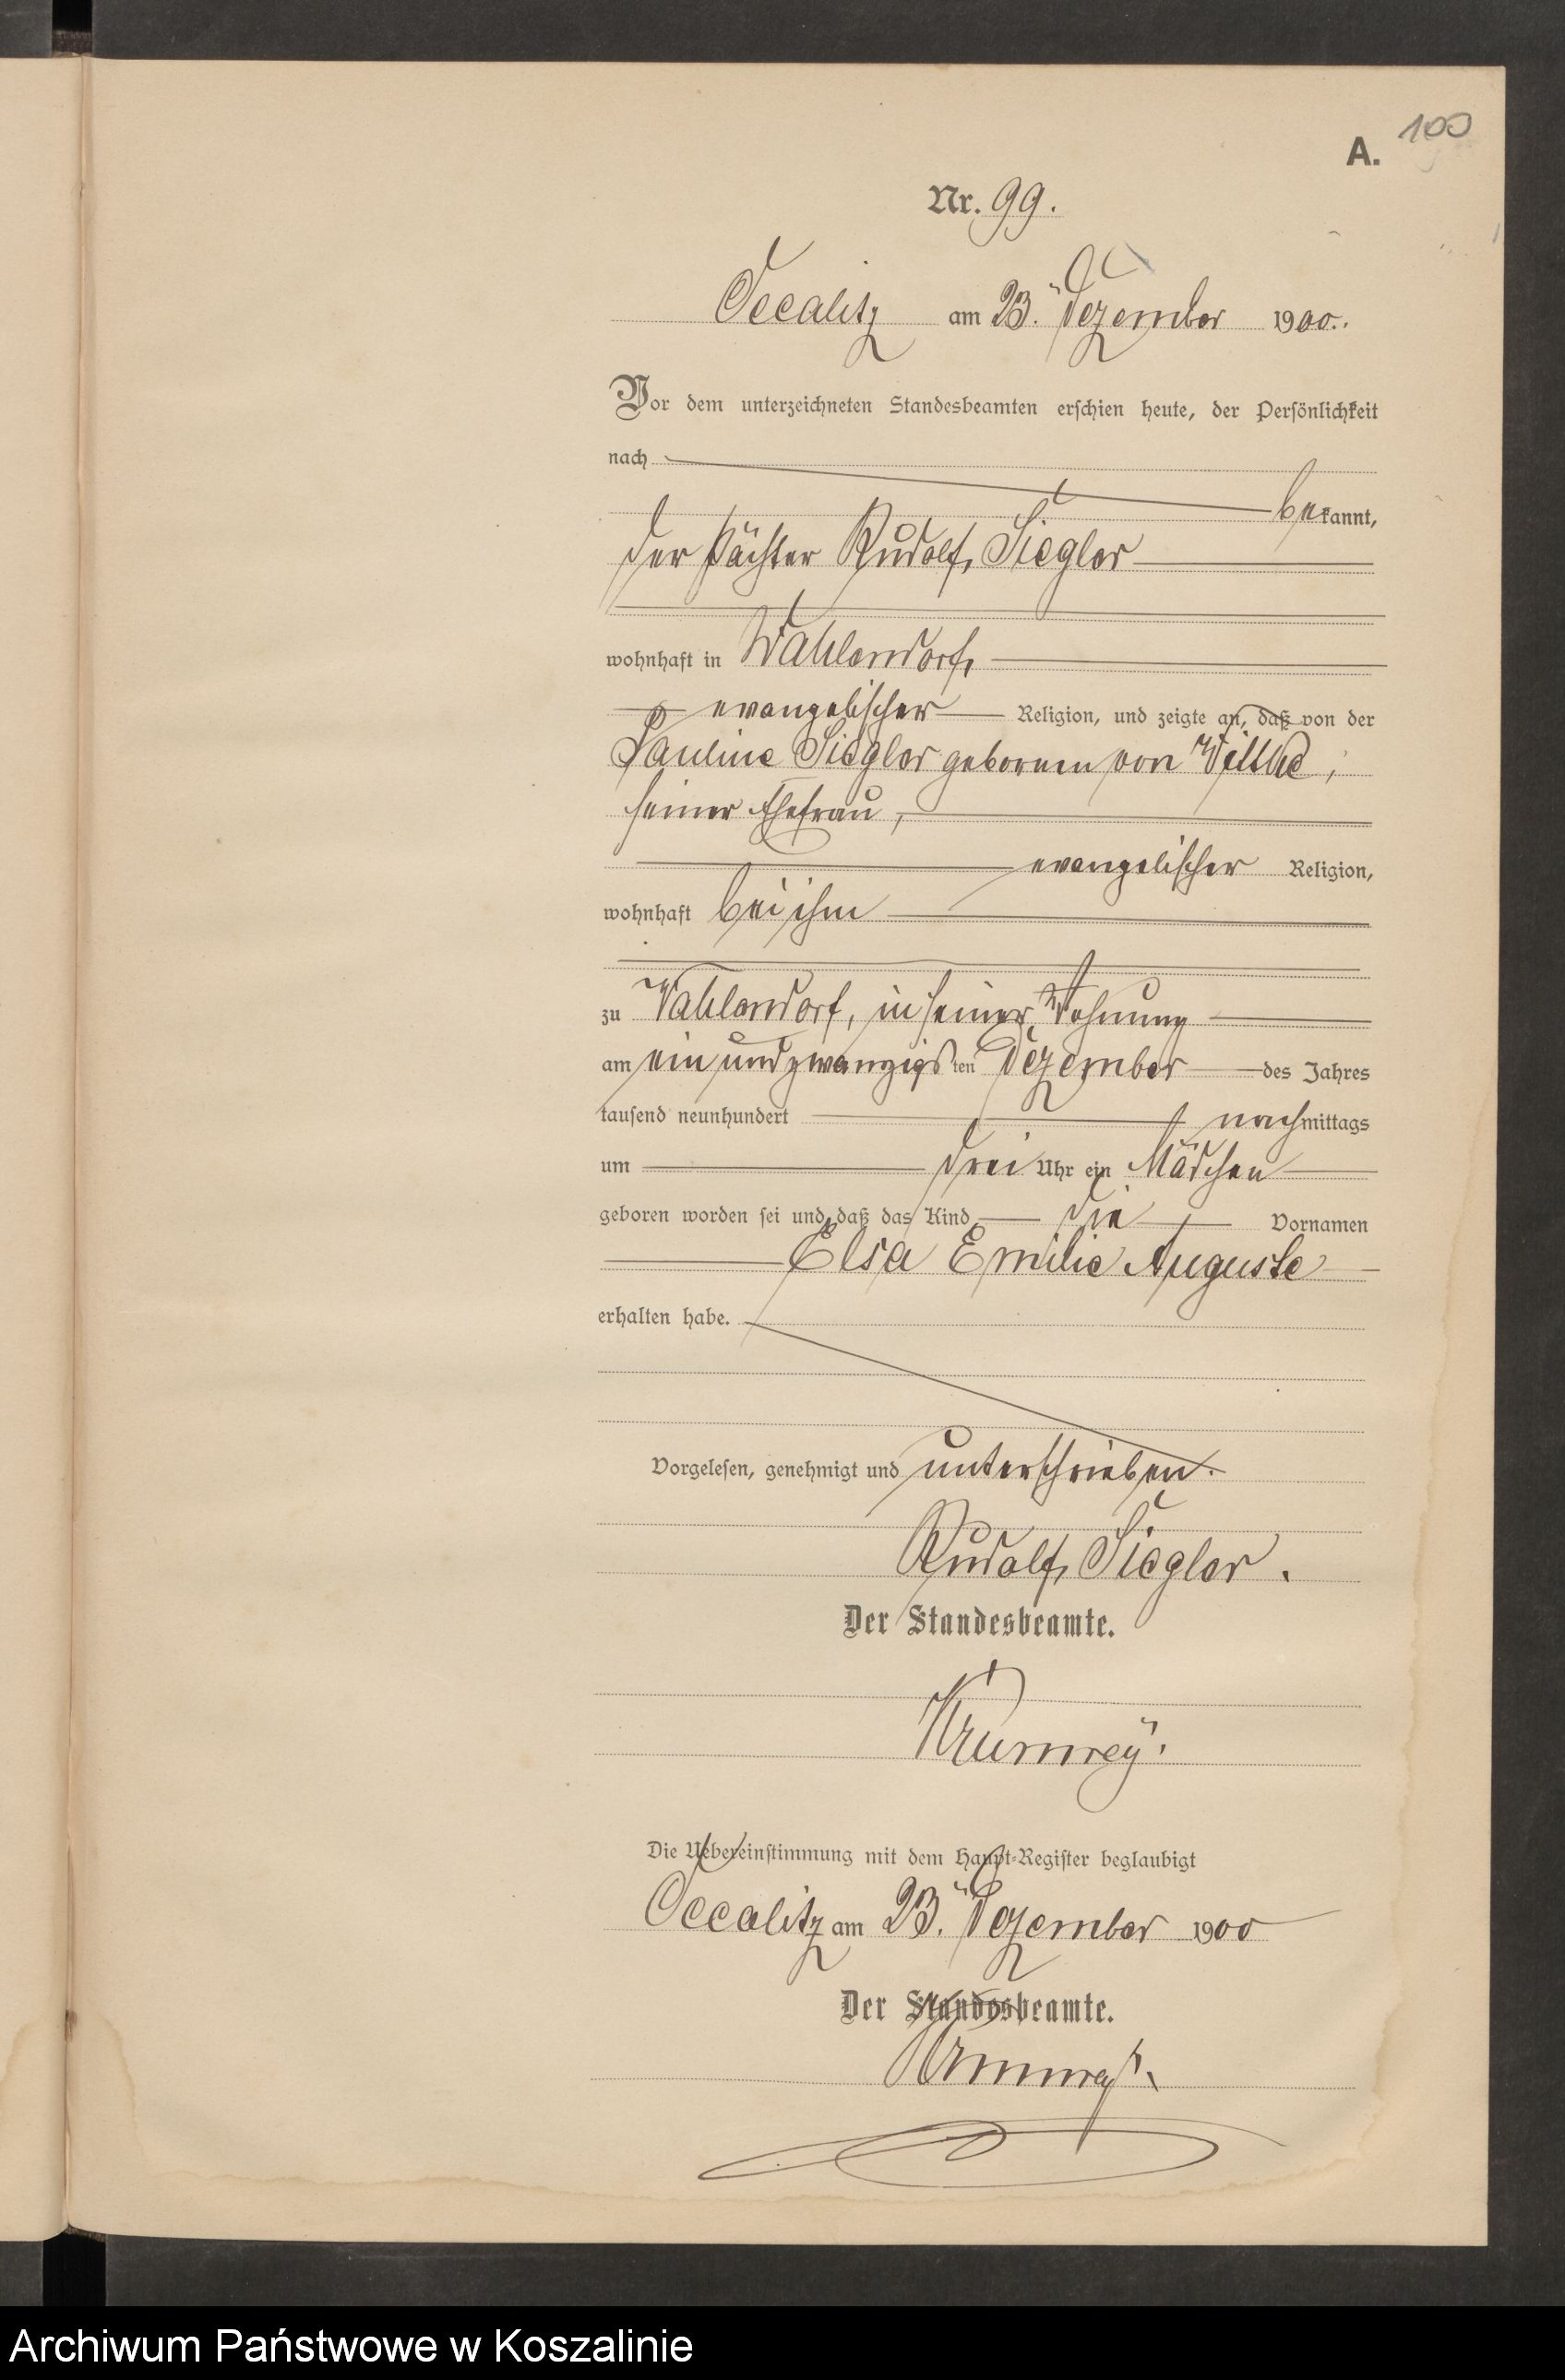 100
A.
Nr. 99.
Occalitz am 23. Dezember 1900.
Vor dem unterzeichneten Standesbeamten erschien heute, der Persönlichkeit
nach
bekannt,
der Pächter Rudolf Siegler
wohnhaft in Wahlendorf,
evangelischer Religion, und zeigte an, daß von der
Pauline Siegler geborenen von
seiner Ehefrau,
evangelischer Religion,
wohnhaft bei ihm
zu Wahlendorf, in seiner Wohnung
am ein und zwanzigsten Dezember des Jahres
tausend neunhundert nachmittags
um drei Uhr ein Mädchen
geboren worden sei und daß das Kind die Vornamen
Elsa Emilie Auguste
erhalten habe.
Vorgelesen, genehmigt und unterschrieben.
Rudolf Siegler.
Der Standesbeamte.
Krumrey.
Die Uebereinstimmung mit dem Haupt-Register beglaubigt
Occalitz am 23. Dezember 1900
Der Standesbeamte.
Krumrey.
Archiwum Państwowe w Koszalinie